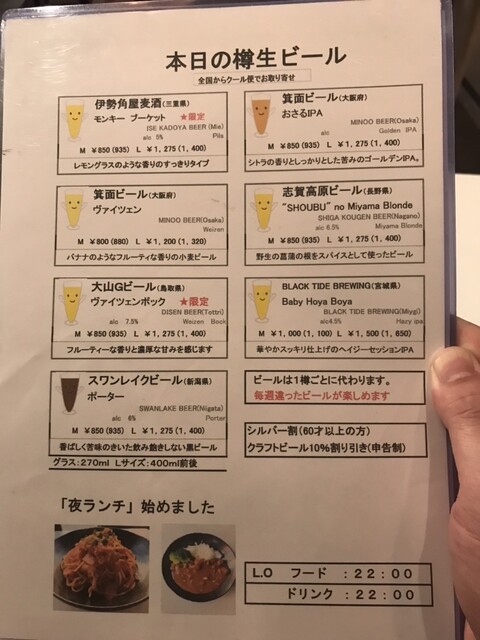 本日の樽生ビール
全国からクール便でお取り寄せ
伊勢角屋麦酒(三重県)
モンキー ブーケット ★限定
ISE KADOYA BEER (Mie)
alc 5% Pils
M ¥850(935) L ¥1,275(1,400)
レモングラスのような香りのすっきりタイプ
箕面ビール(大阪府)
おさるIPA
MINOO BEER(Osaka)
alc Golden IPA
M ¥850(935) L ¥1,275(1,400)
シトラの香りとしっかりとした苦みのゴールデンIPA。
箕面ビール(大阪府)
ヴァイツェン
MINOO BEER(Osaka)
Weizen
M ¥800(880) L ¥1,200(1,320)
バナナのようなフルーティな香りの小麦ビール
志賀高原ビール(長野県)
"SHOUBU" no Miyama Blonde
SHIGA KOUGEN BEER(Nagano)
alc 6.5% Miyama Blonde
M ¥850(935) L ¥1,275(1,400)
野生の菖蒲の根をスパイスとして使ったビール
大山Gビール(鳥取県)
ヴァイツェンボック ★限定
DISEN BEER(Tottri)
alc 7.5% Weizen Bock
M ¥850(935) L ¥1,275(1,400)
フルーティーな香りと濃厚な甘みを感じます
BLACK TIDE BREWING(宮城県)
Baby Hoya Boya
BLACK TIDE BREWING(Miygi)
alc4.5% Hazy ipa
M ¥1,000(1,100) L ¥1,500(1,650)
華やかスッキリ仕上げのヘイジーセッションIPA
スワンレイクビール(新潟県)
ポーター
SWANLAKE BEER(Niigata)
alc 6% Porter
M ¥850(935) L ¥1,275(1,400)
香ばしく苦味のきいた飲み飽きしない黒ビール
グラス:270ml Lサイズ:400ml前後
ビールは1樽ごとに代わります。
毎週違ったビールが楽しめます
シルバー割(60才以上の方)
クラフトビール10%割り引き(申告制)
「夜ランチ」始めました
L.O フード :22:00
ドリンク :22:00